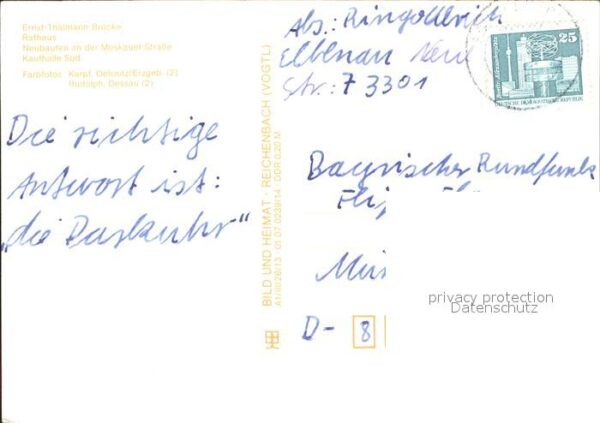 Ernst-Thälmann-Brücke
Rathaus
Neubauten an der Moskauer Straße
Kaufhalle Süd
Farbfotos: Karpf, Oelsnitz/Erzgeb. (2)
Rudolph, Dessau (2)
Die richtige
Antwort ist:
„die Parkuhr"
BILD UND HEIMAT · REICHENBACH (VOGTL)
A1/III/26/13 01 07 0239/14 DDR 0,20 M
Abs.:
Elbenau
Str.: 7 3301
25
DEUTSCHE DEMOKRATISCHE REPUBLIK
Bayrischer Rundfunk
D- 8
privacy protection
Datenschutz